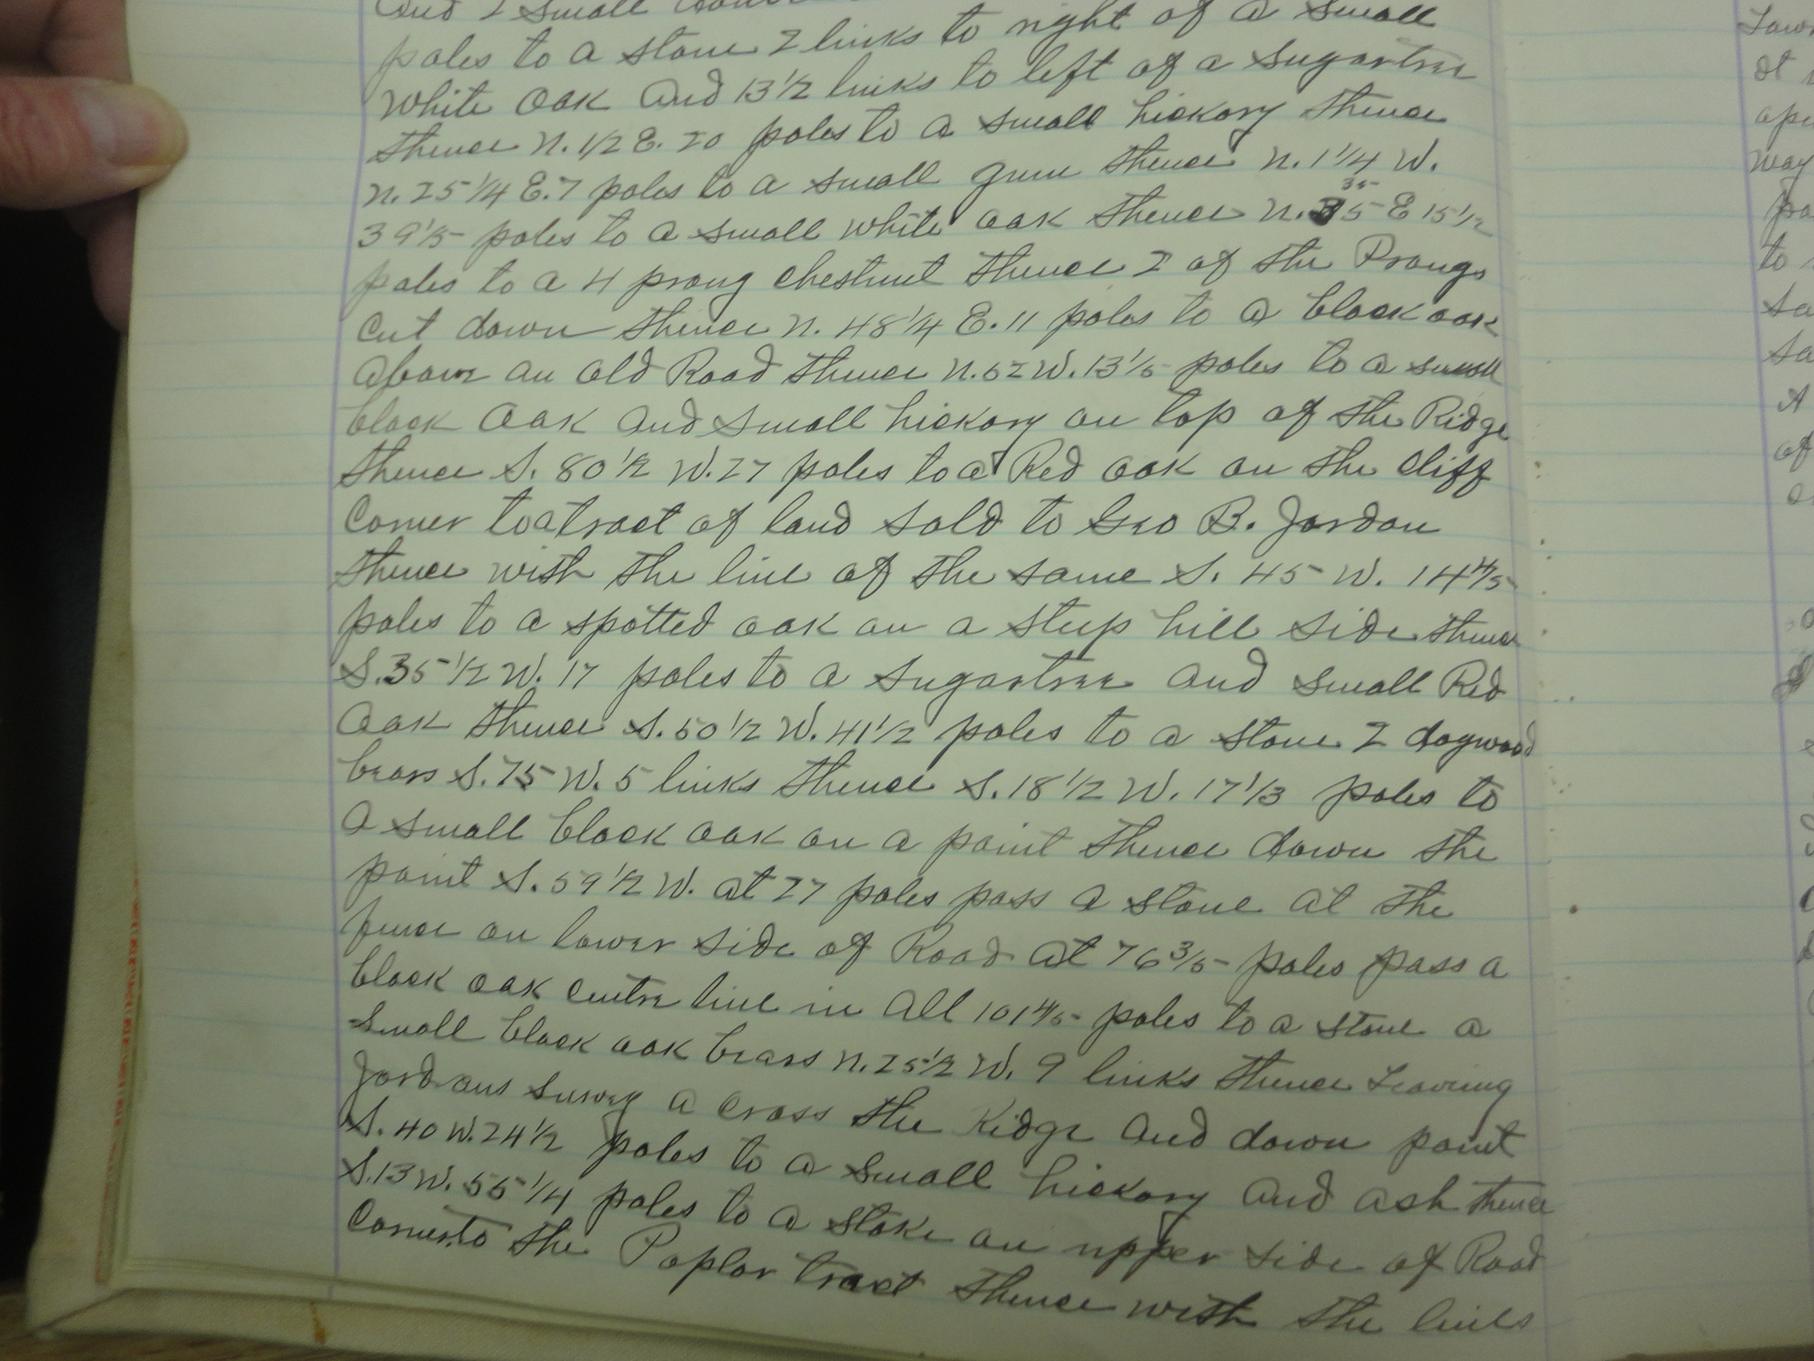 And 2 small
poles to a stone 2 links to right of a small
white oak and 13 1/2 links to left of a sugartree
thence N. 1/2 E. 20 poles to a small hickory thence
N. 25 1/4 E. 7 poles to a small gum thence N. 1 1/4 W.
39 1/5 poles to a small white oak thence N. 35 E 15 1/2
poles to a 4 prong chestnut thence 2 of the Prongs
cut down thence N. 48 1/4 E. 11 poles to a black oak
above an old Road thence N. 52 W. 13 1/5 poles to a small
black oak and small hickory on top of the Ridge
thence S. 80 1/2 W. 27 poles to a Red oak on the cliff
corner to a tract of land sold to Geo B. Jordan
thence with the line of the same S. 45 W. 14 4/5
poles to a spotted oak on a steep hill side thence
S. 35 1/2 W. 17 poles to a sugartree and small Red
oak thence S. 50 1/2 W. 41 1/2 poles to a stone 2 dogwood
bears S. 75 W. 5 links thence S. 18 1/2 W. 17 1/3 poles to
a small black oak on a point thence down the
point S. 59 1/2 W. at 27 poles pass a stone at the
fence on lower side of Road at 76 3/5 poles pass a
black oak centre line in all 101 4/5 poles to a stone a
small black oak bears N. 25 1/2 W. 9 links thence Leaving
Jordans survey a cross the Ridge and down point
S. 40 W. 24 1/2 poles to a small hickory and ash thence
S. 13 W. 55 1/4 poles to a stake on upper side of Road
corner to the Poplar tract thence with the lines